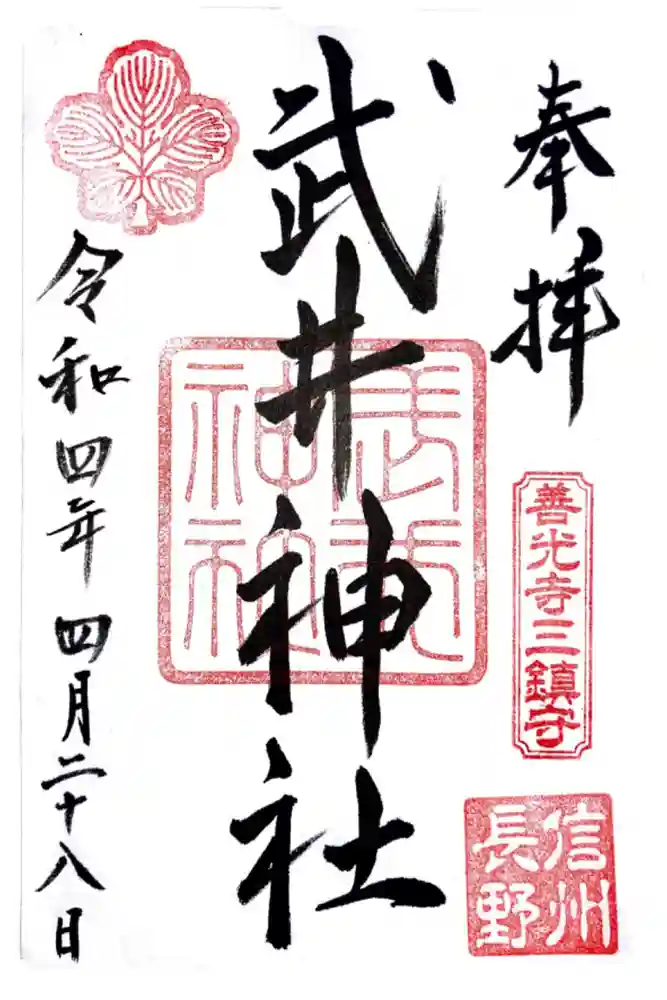 奉拝
善光寺三鎮守
信州
長野
武井神社
令和四年四月二十八日